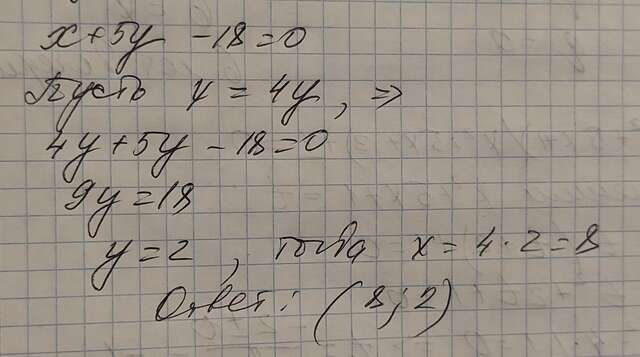 x+5y -18=0
Пусть x = 4y, ⇒
4y+5y -18=0
9y=18
y=2, тогда x = 4·2=8
Ответ: (8;2)